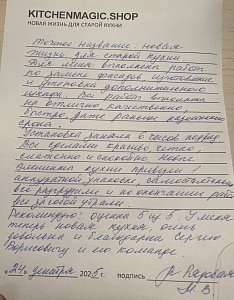 KITCHENMAGIC.SHOP
НОВАЯ ЖИЗНЬ ДЛЯ СТАРОЙ КУХНИ
Точное название: новая
жизнь для старой кухни
Для меня выполнены работы
по замене фасадов, изготовление
и установка дополнительного
шкафа. Все работы выполнены
на отлично, качественно,
быстро, даже раньше назначенного
срока.
Установка заняла 6 часов
Все сделали красиво, четко,
слаженно и спокойно, новые
кухни привезли
аккуратной
разгрузили и по окончании работ
все за собой убрали.
Рекомендую: оценка 5 из 5. У меня
теперь новая кухня, очень
довольна и благодарна Сергею
Борисовичу и его команде.
«24» декабря 2025г. подпись
М. В.